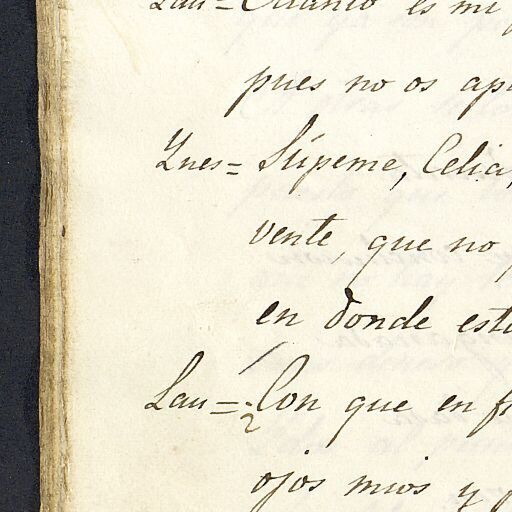 Lau = Cuanto es mi
pues no os
Ynes = Súpeme, Celia,
vente, que no
en donde
Lau = ¿Con que en
ojos mios y